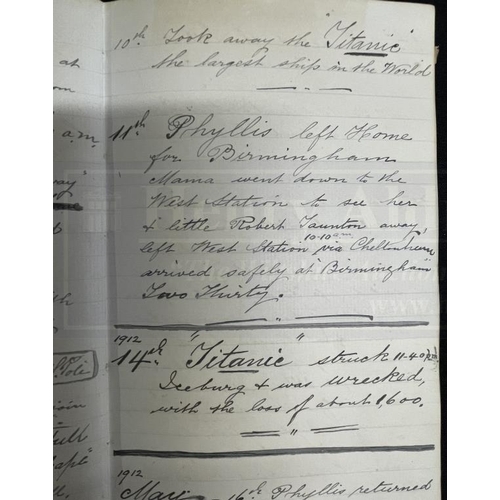 10th Took away the "Titanic"
the largest ship in the World
11th Phyllis left Home
for Birmingham
Mama went down to the
West Station to see her
& little Robert Taunton away,
10-10
left West Station via Cheltenham
arrived safely at Birmingham
Two Thirty.
1912
14th "Titanic" struck 11.40 p.m.
Iceburg & was wrecked,
with the loss of about 1,600.
1912
May 16th Phyllis returned
at
a.m.